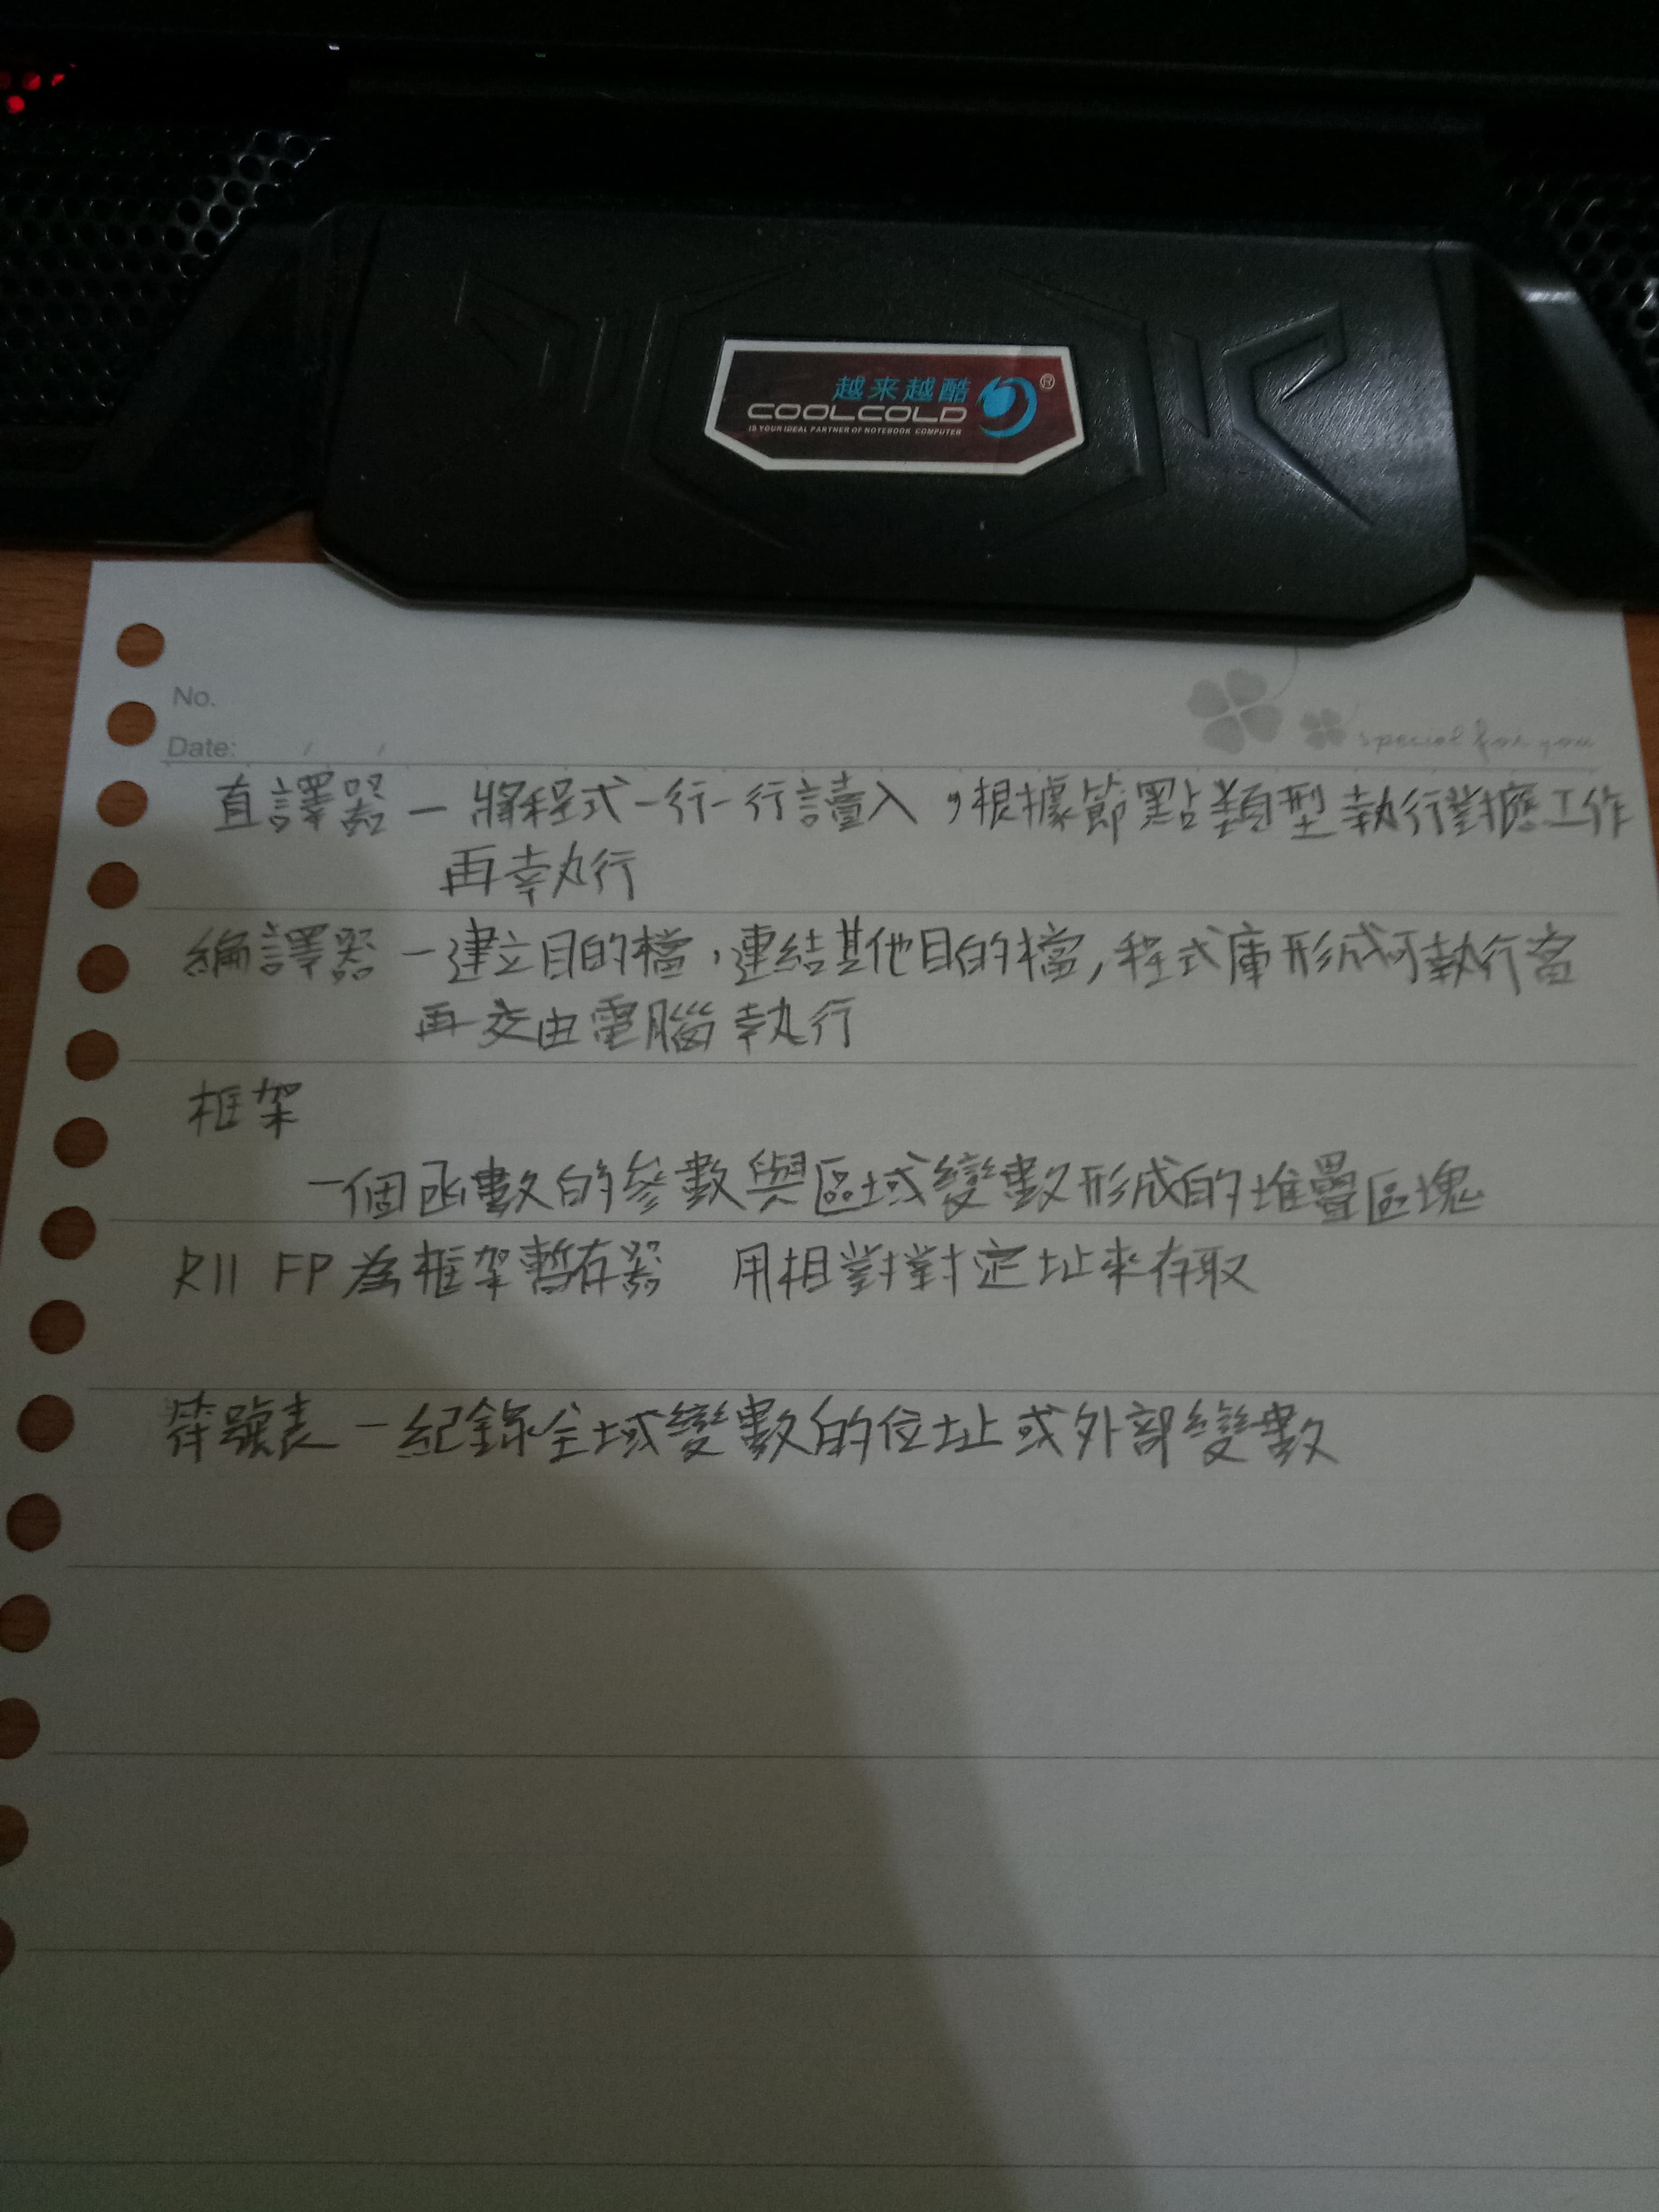 越来越酷
COOLCOLD
®
IS YOUR IDEAL PARTNER OF NOTEBOOK COMPUTER
No.
special for you
Date: / /
直譯器 — 將程式一行一行讀入,根據節點類型執行對應工作
再執行
編譯器 — 建立目的檔,連結其他目的檔,程式庫形成可執行檔
再交由電腦執行
框架
一個函數的參數與區域變數形成的堆疊區塊
R11 FP為框架暫存器 用相對對定址來存取
符號表 — 紀錄全域變數的位址或外部變數